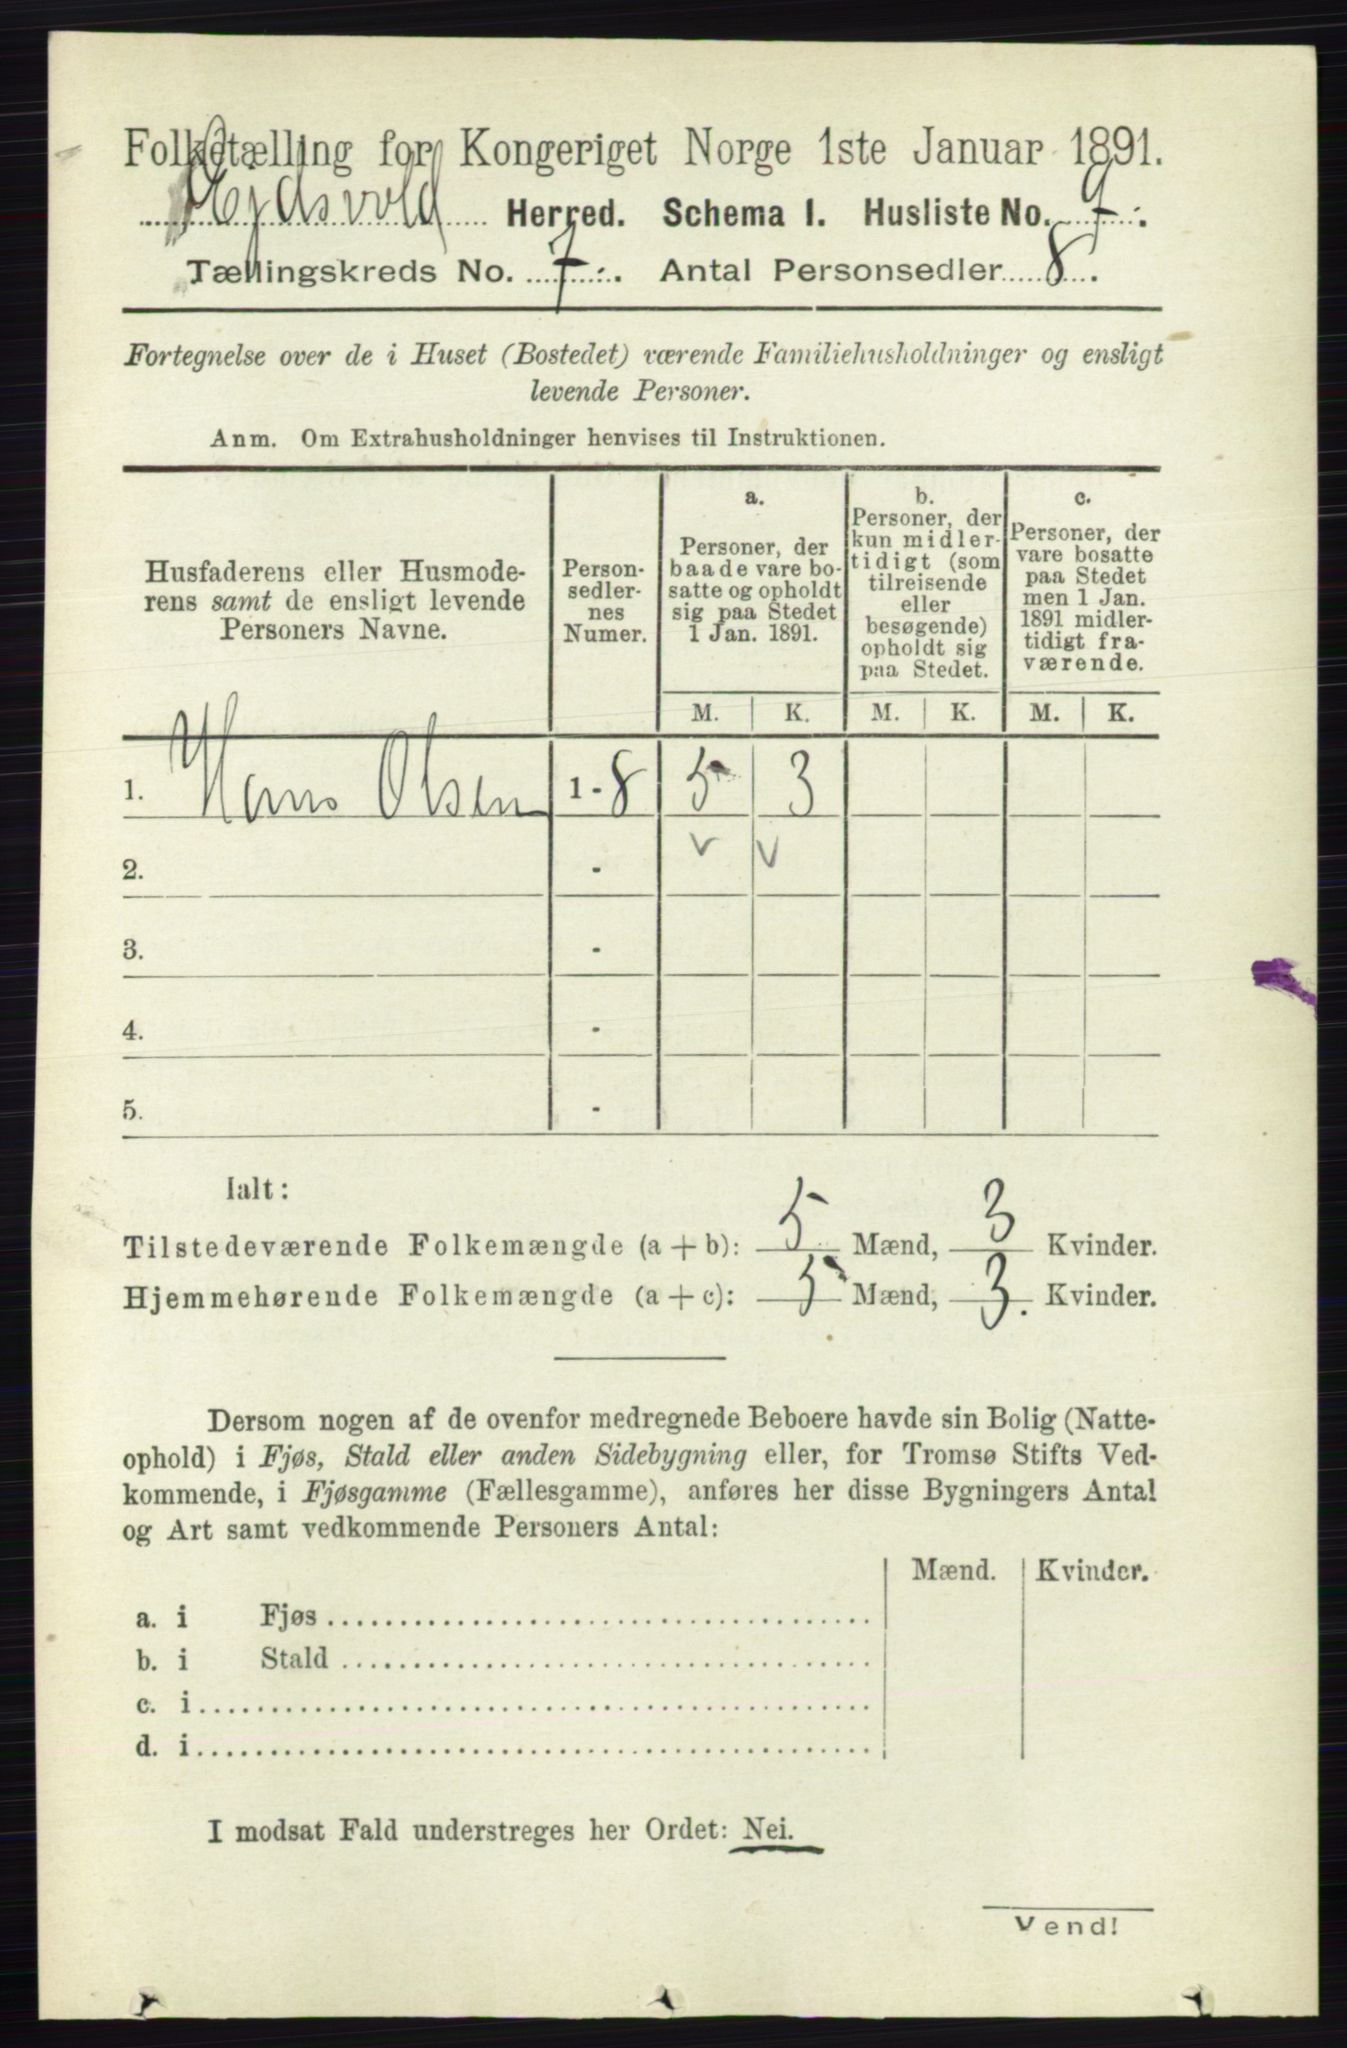 Folketælling for Kongeriget Norge 1ste Januar 1891.
Ejdsvold Herred. Schema I. Husliste No. 9.
Tællingskreds No. 7. Antal Personsedler 8.
Fortegnelse over de i Huset (Bostedet) værende Familiehusholdninger og ensligt
levende Personer.
Anm. Om Extrahusholdninger henvises til Instruktionen.
Husfaderens eller Husmode-
rens samt de ensligt levende
Personers Navne.
Person-
sedler-
nes
Numer.
a.
Personer, der
baade vare bo-
satte og opholdt
sig paa Stedet
1 Jan. 1891.
b.
Personer, der
kun midler-
tidigt (som
tilreisende
eller
besøgende)
opholdt sig
paa Stedet.
c.
Personer, der
vare bosatte
paa Stedet
men 1 Jan.
1891 midler-
tidigt fra-
værende.
M. K. M. K. M. K.
1. Hans Olsen 1 - 8 5 3
2. - v v
3. -
4. -
5. -
Ialt:
Tilstedeværende Folkemængde (a + b): 5 Mænd, 3 Kvinder.
Hjemmehørende Folkemængde (a + c): 5 Mænd, 3. Kvinder.
Dersom nogen af de ovenfor medregnede Beboere havde sin Bolig (Natte-
ophold) i Fjøs, Stald eller anden Sidebygning eller, for Tromsø Stifts Ved-
kommende, i Fjøsgamme (Fællesgamme), anføres her disse Bygningers Antal
og Art samt vedkommende Personers Antal:
Mænd. Kvinder.
a. i Fjøs
b. i Stald
c. i
d. i
I modsat Fald understreges her Ordet: Nei.
Vend!